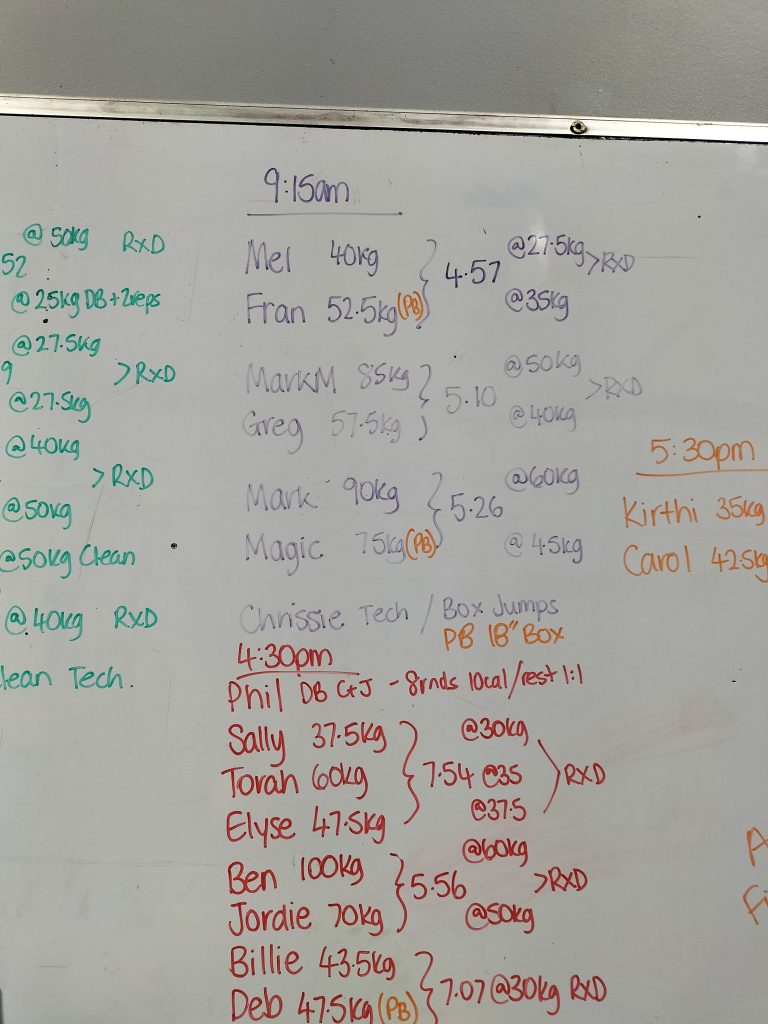 @50kg RxD
52
@25kg DB+2reps
@27.5kg
9 >RxD
@27.5kg
@40kg
>RxD
@50kg
@50kg Clean
@40kg RxD
lean Tech.
9:15am
Mel 40kg } 4.57 @27.5kg >RxD
Fran 52.5kg (PB) @35kg
MarkM 85kg } 5.10 @50kg >RxD
Greg 57.5kg @40kg
Mark 90kg } 5.26 @60kg
Magic 75kg (PB) @ 45kg
Chrissie Tech / Box Jumps
PB 18" Box
4:30pm
Phil DB C+J - 8rnds 10cal/rest 1:1
Sally 37.5kg @30kg
Torah 60kg } 7.54 @35 >RxD
Elyse 47.5kg @37.5
Ben 100kg @60kg
} 5.56 >RxD
Jordie 70kg @50kg
Billie 43.5kg
} 7.07 @30kg RxD
Deb 47.5kg (PB)
5:30pm
Kirthi 35kg
Carol 42.5kg
A
Fi